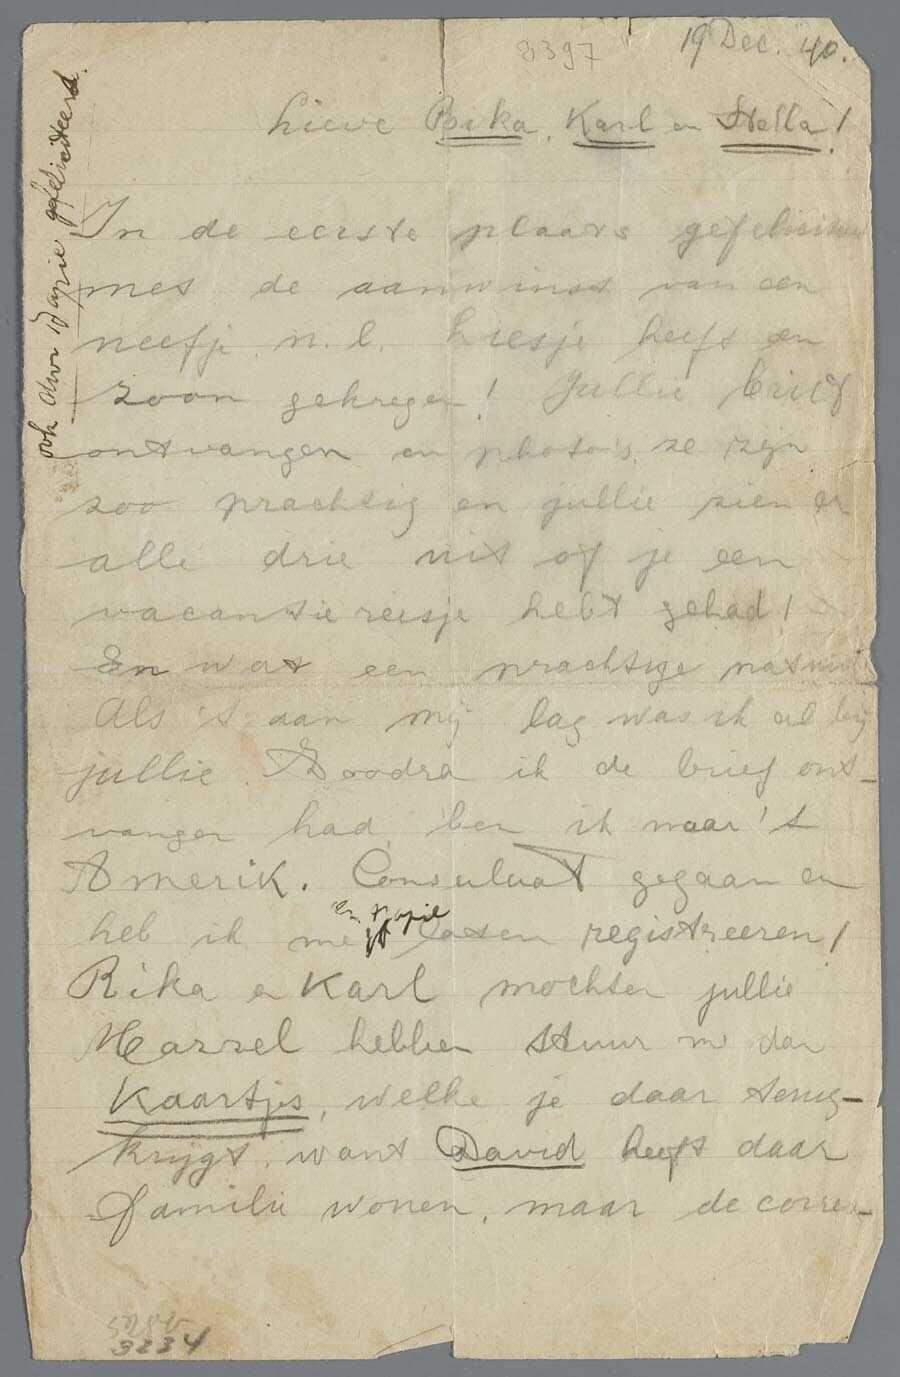 8397
19 Dec. 40.
Lieve Rika, Karl en Stella!
In de eerste plaats
met de aanwinst van een
neefje n.l. Liesje heeft een
zoon gekregen! Jullie brief
ontvangen en photo's, ze zijn
zoo prachtig en jullie zien er
alle drie uit of je een
vacantiereisje hebt gehad!
En wat een prachtige natuur
Als 't aan mij lag was ik al bij
jullie. Zoodra ik de brief ont-
vangen had, ben ik naar 't
Amerik. Consulaat gegaan en
en Papie
heb ik me laten registreeren!
Rika en Karl mochten jullie
hebben stuur me dan
Kaartjes, welke je daar terug-
krijgt, want David heeft daar
familie wonen, maar de corres-
ook door Papie gefeliciteerd.
3234